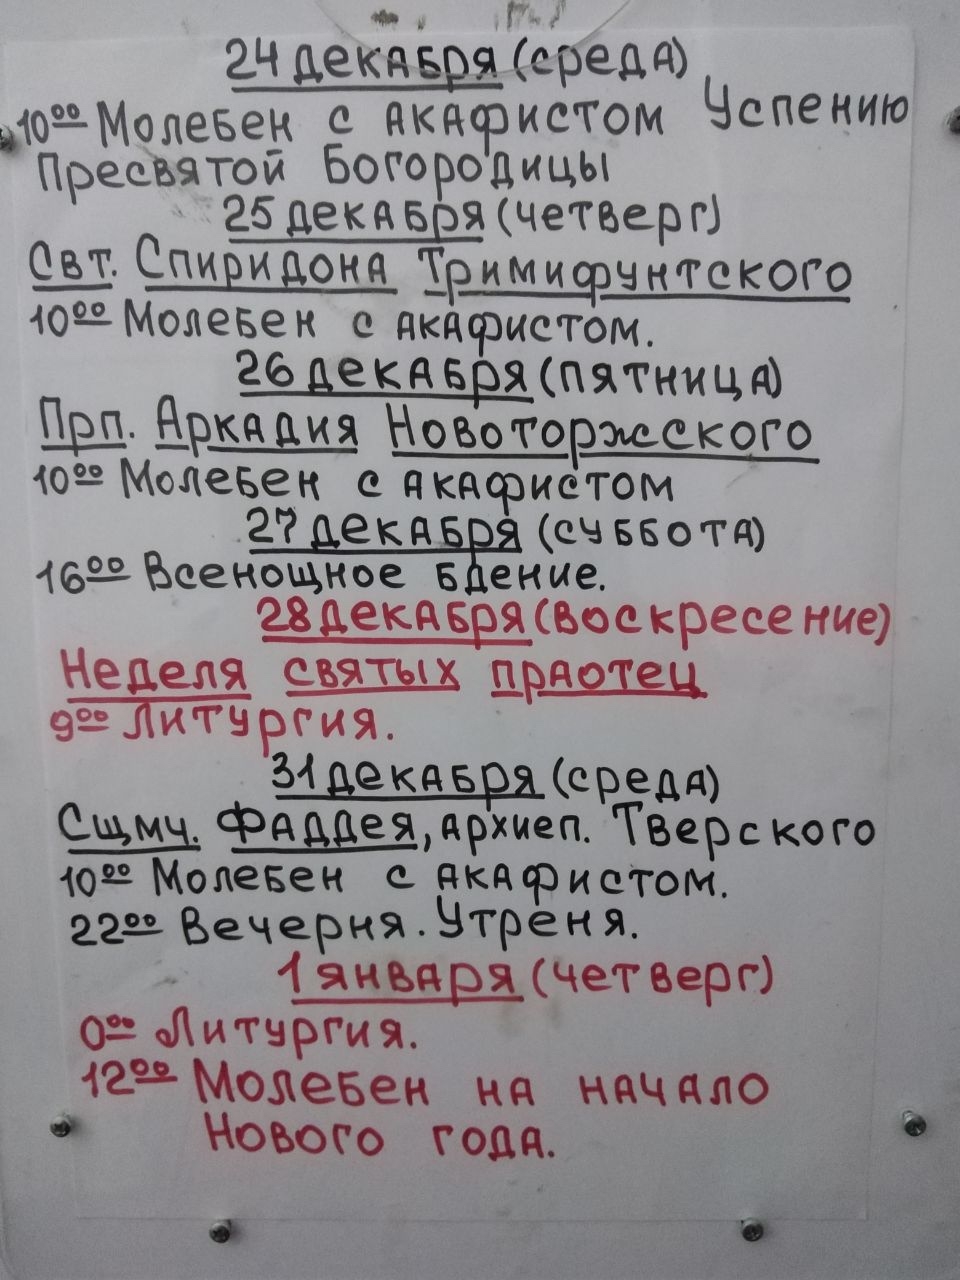 24 декабря (среда)
10⁰⁰ Молебен с акафистом Успению
Пресвятой Богородицы
25 декабря (четверг)
Свт. Спиридона Тримифунтского
10⁰⁰ Молебен с акафистом.
26 декабря (пятница)
Прп. Аркадия Новоторжского
10⁰⁰ Молебен с акафистом
27 декабря (суббота)
16⁰⁰ Всенощное бдение.
28 декабря (воскресение)
Неделя святых праотец
9⁰⁰ Литургия.
31 декабря (среда)
Сщмч. Фаддея, архиеп. Тверского
10⁰⁰ Молебен с акафистом.
22⁰⁰ Вечерня. Утреня.
1 января (четверг)
0⁰⁰ Литургия.
12⁰⁰ Молебен на начало
Нового года.